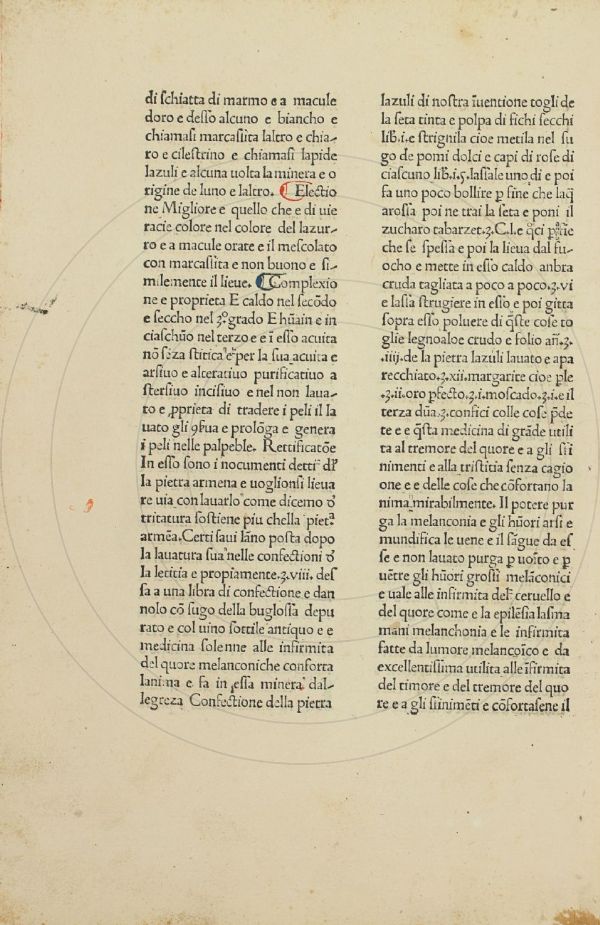 di schiatta di marmo e a macule
doro e desso alcuno e biancho e
chiamasi marcassita laltro e chia-
ro e cilestrino e chiamasi lapide
lazuli e alcuna uolta la minera e o
rigine de luno e laltro. ¶ Electio
ne Migliore e quello che e di uie
racie colore nel colore del lazur-
ro e a macule orate e il mescolato
con marcassita e non buono e si-
milemente il lieue. ¶ Complexio
ne e proprieta E caldo nel secōdo
e seccho nel .3.º grado E hūain e in
ciaschūo nel terzo e e ī esso acuita
nō sēza stitica per la sua acuita e
arsiuo e alteratiuo purificatiuo a
stersiuo incisiuo e nel non laua-
to e ꝓprieta di tradere i peli il la
uato gli ꝯfua e prolōga e genera
i peli nelle palpeble. Rettificatōe
In esso sono i nocumenti detti
la pietra armena e uoglionsi lieua
re uia con lauarlo come dicemo
tritatura sostiene piu chella
armēa. Certi saui lāno posta dopo
la lauatura sua nelle confectioni
la letitia e propiamente.ʒ.viii. des
sa a una libra di confectione e dan
nolo cō sugo della buglossa depu
rato e col uino sottile antiquo e e
medicina solenne alle infirmita
del quore melanconiche conforta
lanima e fa in essa minera dal-
legreza Confectione della pietra
lazuli di nostra īuentione togli de
la seta tinta e polpa di fichi secchi
lib.i. e strignila cioe metila nel su
go de pomi dolci e capi di rose di
ciascuno lib.i.ꝫ. lassale uno di e poi
fa uno poco bollire ꝑ sine che laq̄
arossa poi ne trai la seta e poni il
zucharo tabarzet.ʒ.C.l.e
che se spessa e poi la lieua dal fu-
ocho e mette in esso caldo anbra
cruda tagliata a poco a poco.ʒ.vi
e lassa strugiere in esso e poi gitta
sopra esso poluere di q̄ste cose to
glie legnoaloe crudo e folio añ.ʒ.
.iiij. de la pietra lazuli lauato e apa
recchiato.ʒ.xii. margarite cioe ple
.ʒ.ii. oro pfecto.ʒ.i. moscado.ʒ.i. e il
terza dūa.ʒ. confici colle cose p̄de
te e e q̄sta medicina di grāde utili
ta al tremore del quore e a gli sīi
nimenti e alla tristitia senza cagio
one e e delle cose che cōfortano la
nima mirabilmente. Il potere pur
ga la melanconia e gli hūori arsi e
mundifica le uene e il sāgue da es
se e non lauato purga ꝑ uoīto e ꝑ
uētre gli hūori grossi melāconici
e uale alle infirmita del ceruello e
del quore come e la epilēsia lasma
mani melanchonia e le infirmita
fatte da lumore melancoīco e da
excellentissima utilita alle īfirmita
del timore e del tremore del quo
re e a gli sīinimēti e cōfortasene il